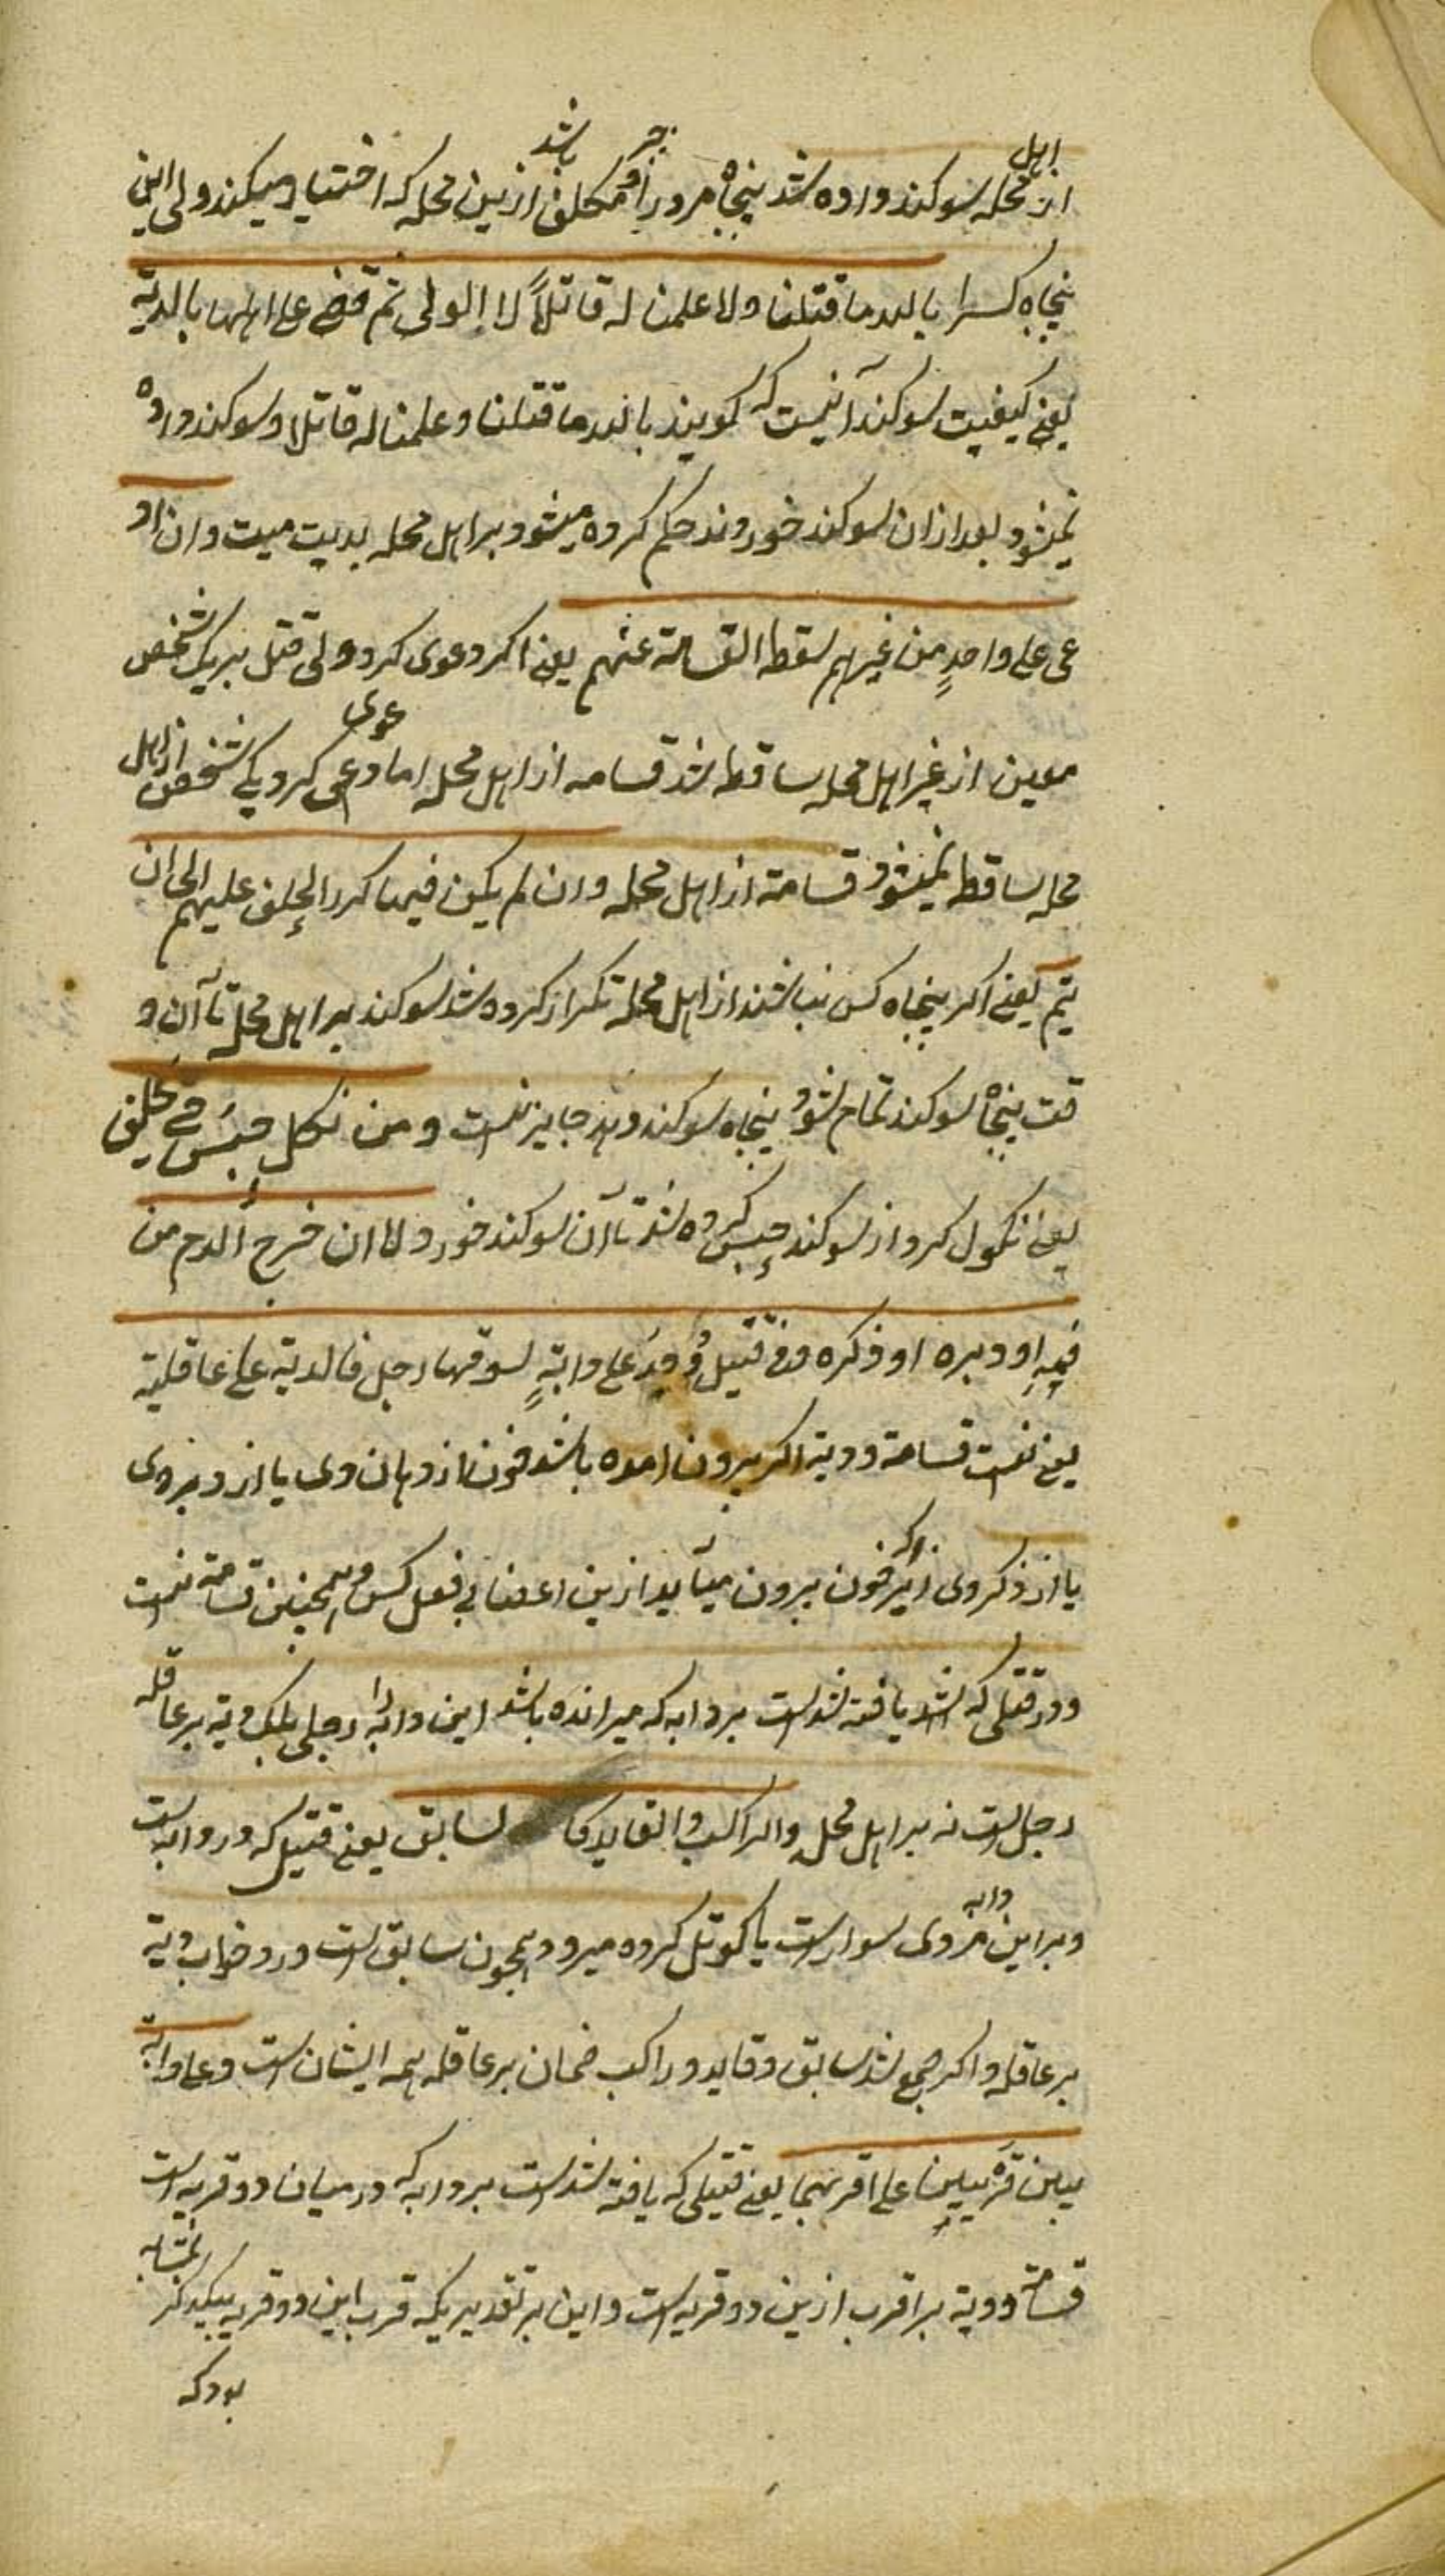 اهل حر باشد
از محله سوکند داده شد پنجاه مرد را و مکلف ازین محله که اختیار میکند ولی این
پنجاه کس را بالله ما قتلنا ولا علمنا له قاتلاً لا الولی ثم قضی علی اهلها بالدیة
یعنی کیفیت سوکند آنیست که کویند بالله ما قتلنا و علمنا له قاتلا و سوکند داده
نمیشود بعد ازان سوکند خوردند حکم کرده میشود بر اهل محله بدیت میت وان اد
عی علی واحدٍ من غیرهم سقط القسامة عنهم یعنی اکر دعوی کرد ولی قتل بر یک شخص
معین از غیر اهل محله ساقط شد قسامه از اهل محله اما دعوی کرد یکی شخص از اهل
محله ساقط نمیشود قسامة از اهل محله وان لم یکن فیها کرر الحلف علیهم الی ان
یتم یعنی اکر پنجاه کس نباشند از اهل محله تکرار کرده شد سوکند بر اهل محله تا آن و
قت پنجاه سوکند تمام شود پنجاه سوکند جایز نیست ومن نکل حبس حتی یحلف
یعنی نکول کرد از سوکند حبس کرده شد تا آن سوکند خورد ولا ان خرج الدم من
فمه او دبره او ذکره وفی قتیل وُجِدَ علی دابةٍ یسوقها رجل فالدیة علی عاقلته
یعنی نیست قسامة و دیة اکر بیرون امده باشد خون از دهان وی یا از دبر وی
یا از ذکر وی زیراکه خون بیرون میآید ازین اعضا بی فعل کس و همچنین قسامة نیست
و در قتلی که شد یافته شده است بر دابه که میرانده باشد این دابه را رجلی بلکه دیة بر عاقله
رجل است نه بر اهل محله والراکب والقاید کا لسابق یعنی قتیل که در دابه است
و بر این دابه مردی سوار است یا کوتل کرده میرود همچون سابق است در وجوب دیة
بر عاقله و اکر جمع شد سابق و قاید و راکب ضمان بر عاقله همه ایشان است وعلی دابة
بین قریتین علی اقربهما یعنی قتیلی که یافته شده است بر دابه که در میان دو قریه است
قسامة و دیة بر اقرب ازین دو قریه است و این بر تقدیریکه قرب این دو قریه بیکدیکر بمثابه
بود که